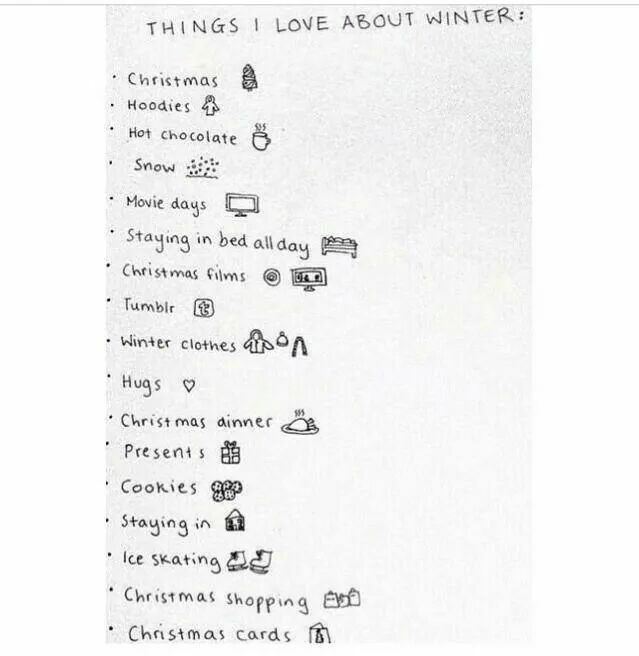 THINGS I LOVE ABOUT WINTER:
• Christmas
• Hoodies
• Hot chocolate
• Snow
• Movie days
• Staying in bed all day
• Christmas films
• Tumblr t
• Winter clothes
• Hugs
• Christmas dinner
• Presents
• Cookies
• Staying in
• Ice skating
• Christmas shopping
• Christmas cards